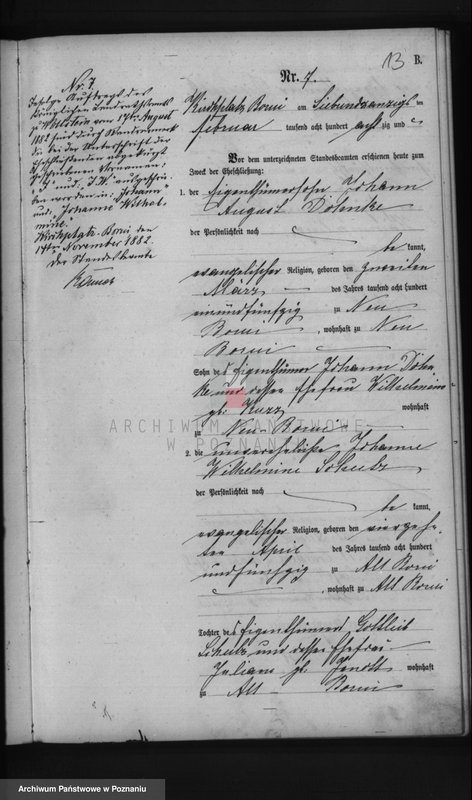 13
B.
Nr. 7.
Nr. 7
Infolge Auftrags des
Königlichen Landrathsamts
zu Wollstein vom 17ten August
1882 sind durch
die bei der Unterschrift der
Eheschließenden abgekürzt
geschriebenen Vornamen
"J" und "J. W."
den worden in "Johann"
und "Johanne Wilhel-
mine".
Kirchplatz-Borui den
14ten November 1882.
Der Standesbeamte
Kirchplatz Borui am Siebundzwanzigsten
Februar tausend acht hundert acht zig und
Vor dem unterzeichneten Standesbeamten erschienen heute zum
Zweck der Eheschließung:
1. der Eigenthümersohn Johann
August Dohnke
der Persönlichkeit nach
be kannt,
evangelischer Religion, geboren den zweiten
März des Jahres tausend acht hundert
fünfzig zu Neu
Borui, wohnhaft zu Neu
Borui
Sohn des Eigenthümer Johann Dohn-
ke und dessen Ehefrau Wilhelmine
geb. Kurz wohnhaft
zu Neu Borui
2. die unverehelichte Johanne
Wilhelmine Schulz
der Persönlichkeit nach
be kannt,
evangelischer Religion, geboren den vierzehn-
ten April des Jahres tausend acht hundert
undfünfzig zu Alt Borui
, wohnhaft zu Alt Borui
Tochter des Eigenthümers Gottlieb
Schulz und dessen Ehefrau
Juliane geb. wohnhaft
zu Alt Borui
ARCHIWUM PAŃSTWOWE
W POZNANIU
Archiwum Państwowe w Poznaniu